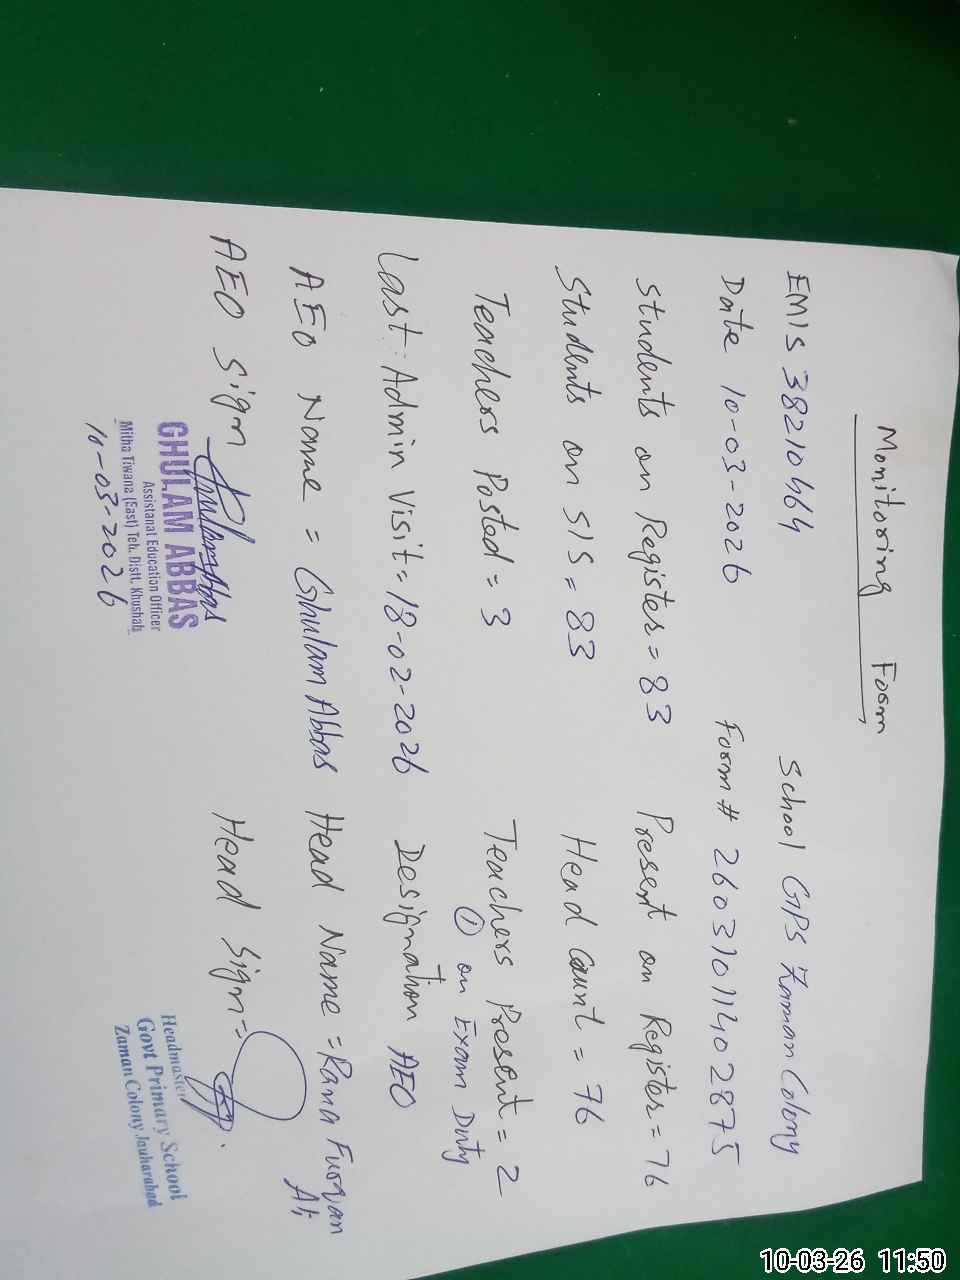 Monitoring Form
EMIS 38210464 School GPS Zaman Colony
Date 10-03-2026 Form # 26031011402875
Students on Register = 83 Present on Register = 76
Students on SIS = 83 Head Count = 76
Teachers Posted = 3 Teachers Present = 2
① on Exam Duty
Last Admin Visit = 18-02-2026 Designation AEO
AEO Name = Ghulam Abbas Head Name = Rana Furqan
Ali
AEO Sign Head Sign =
GHULAM ABBAS
Assistanat Education Officer
Mitha Tiwana (East) Teh. Distt. Khushab
10-03-2026
Headmaster
Govt Primary School
Zaman Colony Jauharabad
10-03-26 11:50